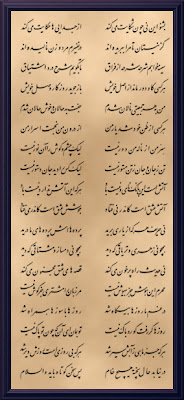 بشنو این نی چون شکایت می کند از جداییها حکایت می کند
کز نیستان تا مرا ببریده اند در نفیرم مرد و زن نالیده اند
سینه خواهم شرحه شرحه از فراق تا بگویم شرح درد اشتیاق
هر کسی کو دور ماند از اصل خویش باز جوید روزگار وصل خویش
من به هر جمعیتی نالان شدم جفت بدحالان و خوش حالان شدم
هر کسی از ظن خود شد یار من از درون من نجست اسرار من
سر من از ناله من دور نیست لیک چشم و گوش را آن نور نیست
تن ز جان و جان ز تن مستور نیست لیک کس را دید جان دستور نیست
آتشست این بانگ نای و نیست باد هر که این آتش ندارد نیست باد
آتش عشقست کاندر نی فتاد جوشش عشقست کاندر می فتاد
نی حریف هر که از یاری برید پرده هایش پرده های ما درید
همچو نی زهری و تریاقی که دید همچو نی دمساز و مشتاقی که دید
نی حدیث راه پر خون می کند قصه های عشق مجنون می کند
محرم این هوش جز بیهوش نیست مر زبان را مشتری جز گوش نیست
در غم ما روزها بیگاه شد روزها با سوزها همراه شد
روزها گر رفت گو رو باک نیست تو بمان ای آنکه چون تو پاک نیست
هر که جز ماهی ز آبش سیر شد هر که بی روزیست روزش دیر شد
در نیابد حال پخته هیچ خام پس سخن کوتاه باید والسلام